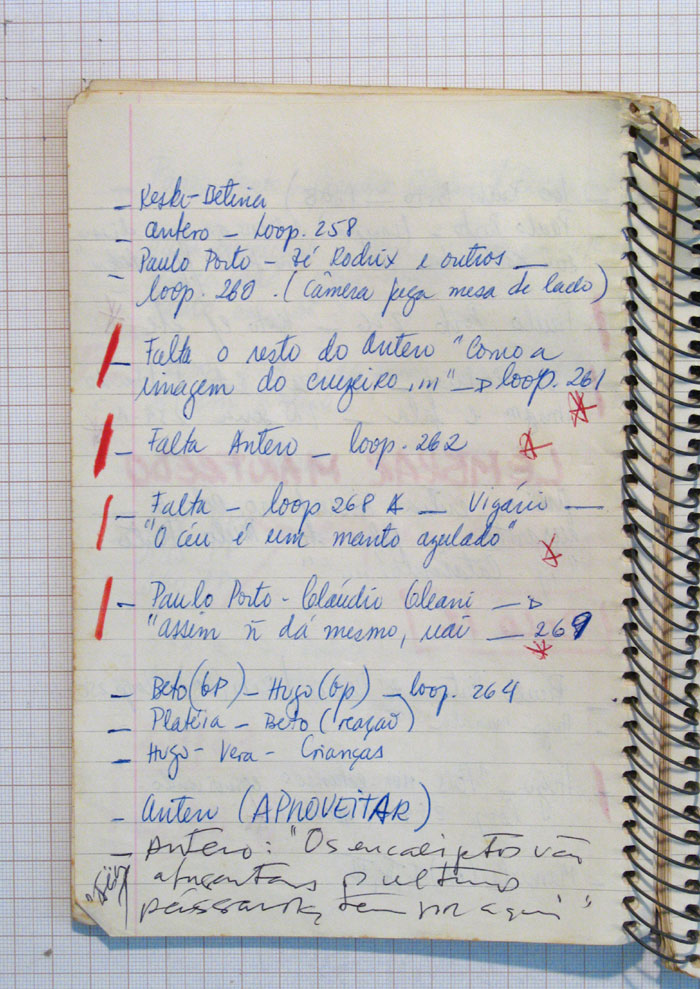 - Keski-Betina
- Antero - Loop. 258
- Paulo Porto - Zé Rodrix e outros -
loop. 260. (Câmera pega mesa de lado)
- Falta o resto do Antero "Como a
imagem do cruzeiro,..." - loop. 261
- Falta Antero - loop. 262
- Falta - loop 268 A - Vigário -
"O céu é um manto azulado"
- Paulo Porto - Claúdio -
"assim ñ dá mesmo, uai - 269
- Beto (GP) - Hugo (Gp) - loop. 264
- Platéia - Beto (reação)
- Hugo - Vera - Crianças
- Antero (APROVEITAR)
- Antero: "Os encaliptos vão
afugentar
pássaros, tem por aqui"
LEMBRAR